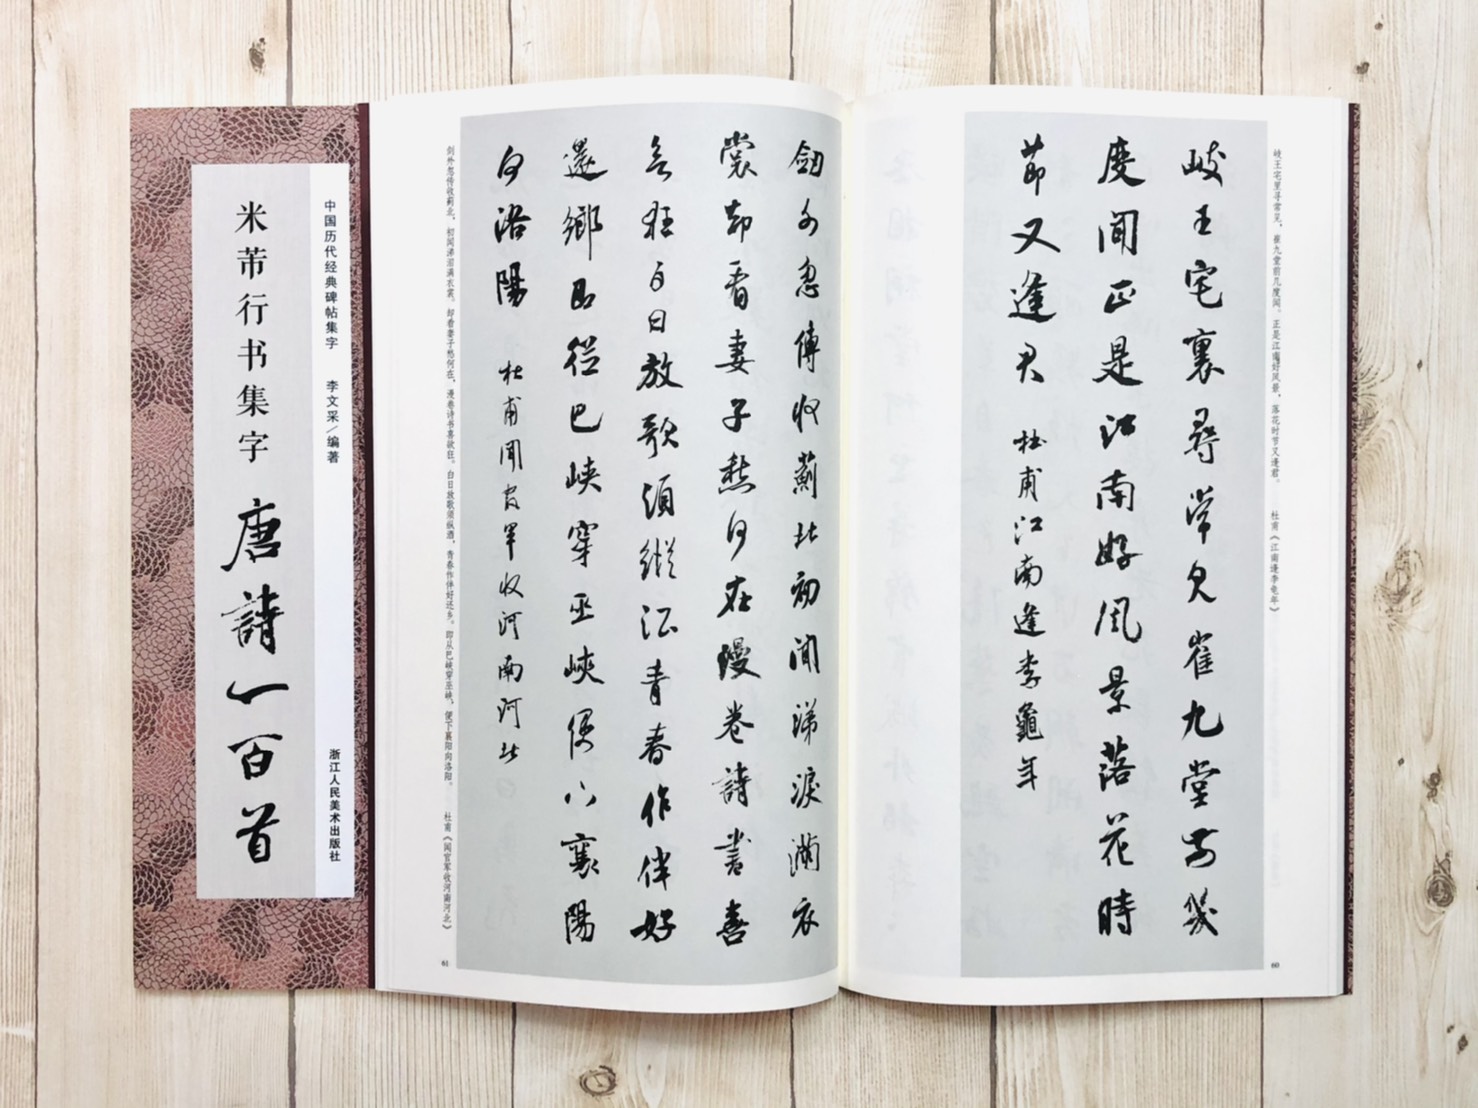 岐王宅里寻常见，崔九堂前几度闻。正是江南好风景，落花时节又逢君。 杜甫《江南逢李龟年》
岐王宅裏尋常見崔九堂前幾
度聞正是江南好風景落花時
節又逢君 杜甫江南逢李龜年
60
劒外忽傳收薊北初聞涕淚滿衣
裳却看妻子愁何在漫卷詩書喜
欲狂白日放歌須縱酒青春作伴好
還鄉即從巴峽穿巫峽便下襄陽
向洛陽 杜甫聞官軍收河南河北
剑外忽传收蓟北，初闻涕泪满衣裳。却看妻子愁何在，漫卷诗书喜欲狂。白日放歌须纵酒，青春作伴好还乡。即从巴峡穿巫峡，便下襄阳向洛阳。 杜甫《闻官军收河南河北》
61
中国历代经典碑帖集字 李文采/编著 浙江人民美术出版社
米芾行书集字 唐詩一百首